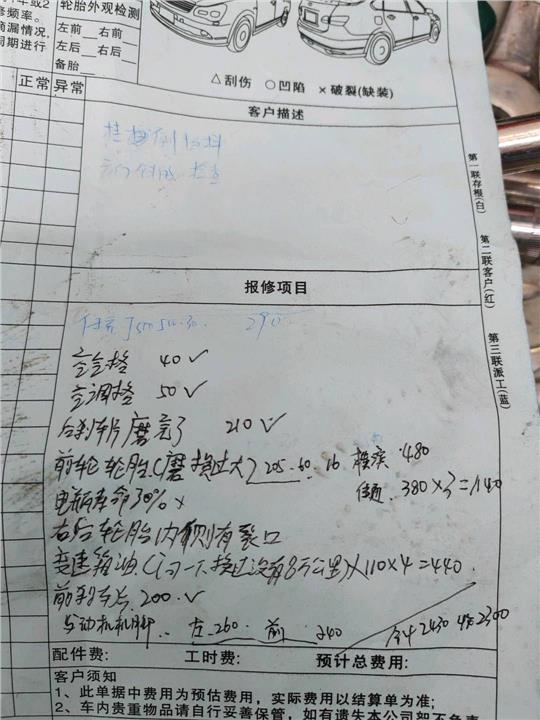 车或2
轮胎外观检测
修频率。
滴漏情况,
左前 右前
周期进行
左后 右后
备胎
正常 异常
△刮伤 ○凹陷 ×破裂(缺装)
客户描述
检查
第一联存根(白)
第二联客户(红)
第三联派工(蓝)
报修项目
290
空气格 40 ✓
空调格 50 ✓
后刹车片磨完了 210 ✓
前轮轮胎(磨损过大) 205.60.16 横滨 480
佳通 380×3=1140
电瓶寿命30% ×
右后轮胎内侧有裂口
变速箱油(问一下换过没有8万公里)×110×4=440.
前刹车片 200. ✓
发动机机脚 左260 前 240
合计2430 优2300
配件费: 工时费: 预计总费用:
客户须知
1、此单据中费用为预估费用,实际费用以结算单为准;
2、车内贵重物品请自行妥善保管,如有遗失本公司概不负责